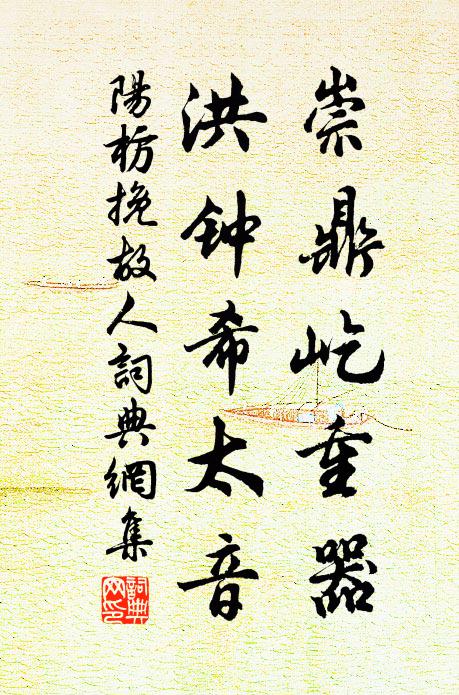 崇鼎屹重器
洪钟希太音
陽枋挽故人詞典網集
詞典網印